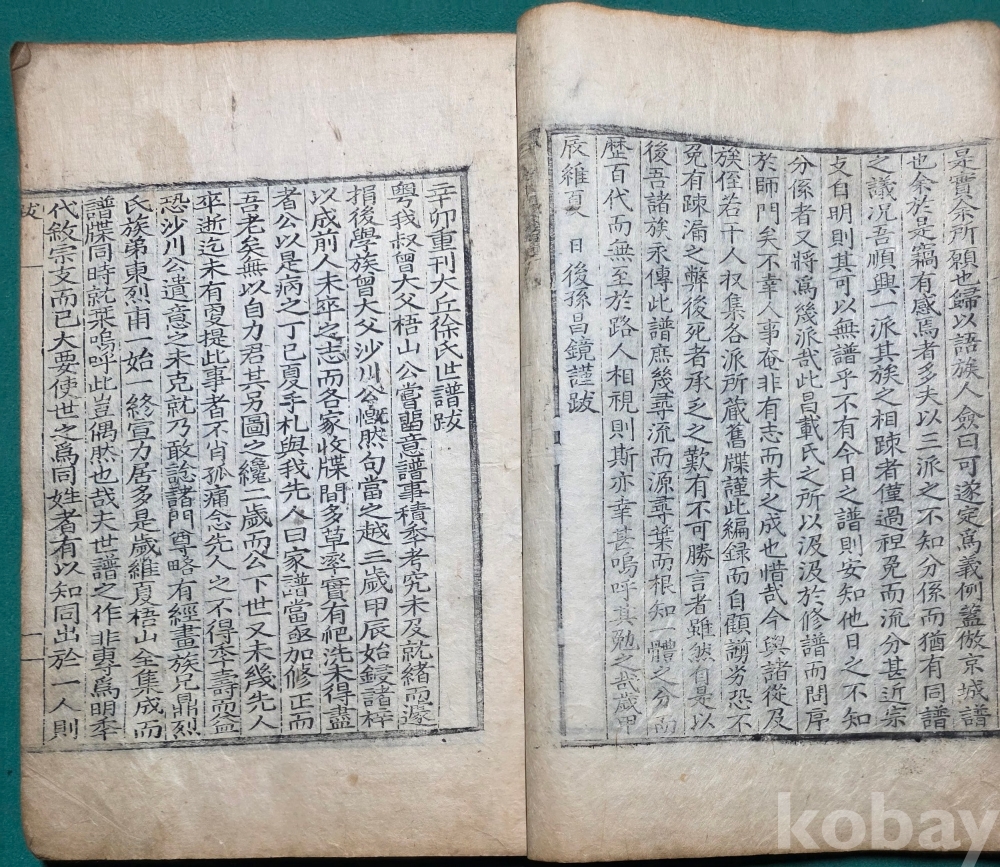 是實余所願也歸以語族人僉曰可遂定爲義例蓋倣京城譜
也余於是竊有感焉者多夫以三派之不知分係而猶有同譜
之議况吾順興一派其族之相踈者僅過袒免而流分甚近宗
支自明則其可以無譜乎不有今日之譜則安知他日之不知
分係者又將爲幾派哉此昌載氏之所以汲汲於修譜而問序
於師門矣不幸人事奄非有志而未之成也惜哉今與諸從及
族侄若干人收集各派所蔵舊牒謹此編録而自顧謭劣恐不
免有踈漏之弊後死者承乏之歎有不可勝言者雖然自是以
後吾諸族永傳此譜庶幾尋流而源尋葉而根知一軆之分而
歷百代而無至於路人相視則斯亦幸甚嗚呼其勉之哉歲甲
辰維夏 日後孫昌鏡謹跋
辛卯重刊大丘徐氏世譜跋
粤我叔曾大父梧山公嘗留意譜事積年考究未及就緒而遽
捐後學族曾大父沙川公慨然句當之越三歲甲辰始鋟諸梓
以成前人未卒之志而各家收牒間多草率實有爬洗未得盡
者公以是病之丁巳夏手札與我先人曰家譜當亟加修正而
吾老矣無以自力君其另圖之纔二歲而公下世又未幾先人
卒逝迄未有更提此事者不肖孤痛念先人之不得年壽而益
恐沙川公遺意之未克就乃敢諗諸門尊略有經畫族兄鼎烈
氏族弟東烈甫一始一終宣力居多是歲維夏梧山全集成而
譜牒同時就栞嗚呼此豈偶然也哉夫世譜之作非專爲明年
代敘宗支而已大要使世之爲同姓者有以知同出於一人則
跋
kobay